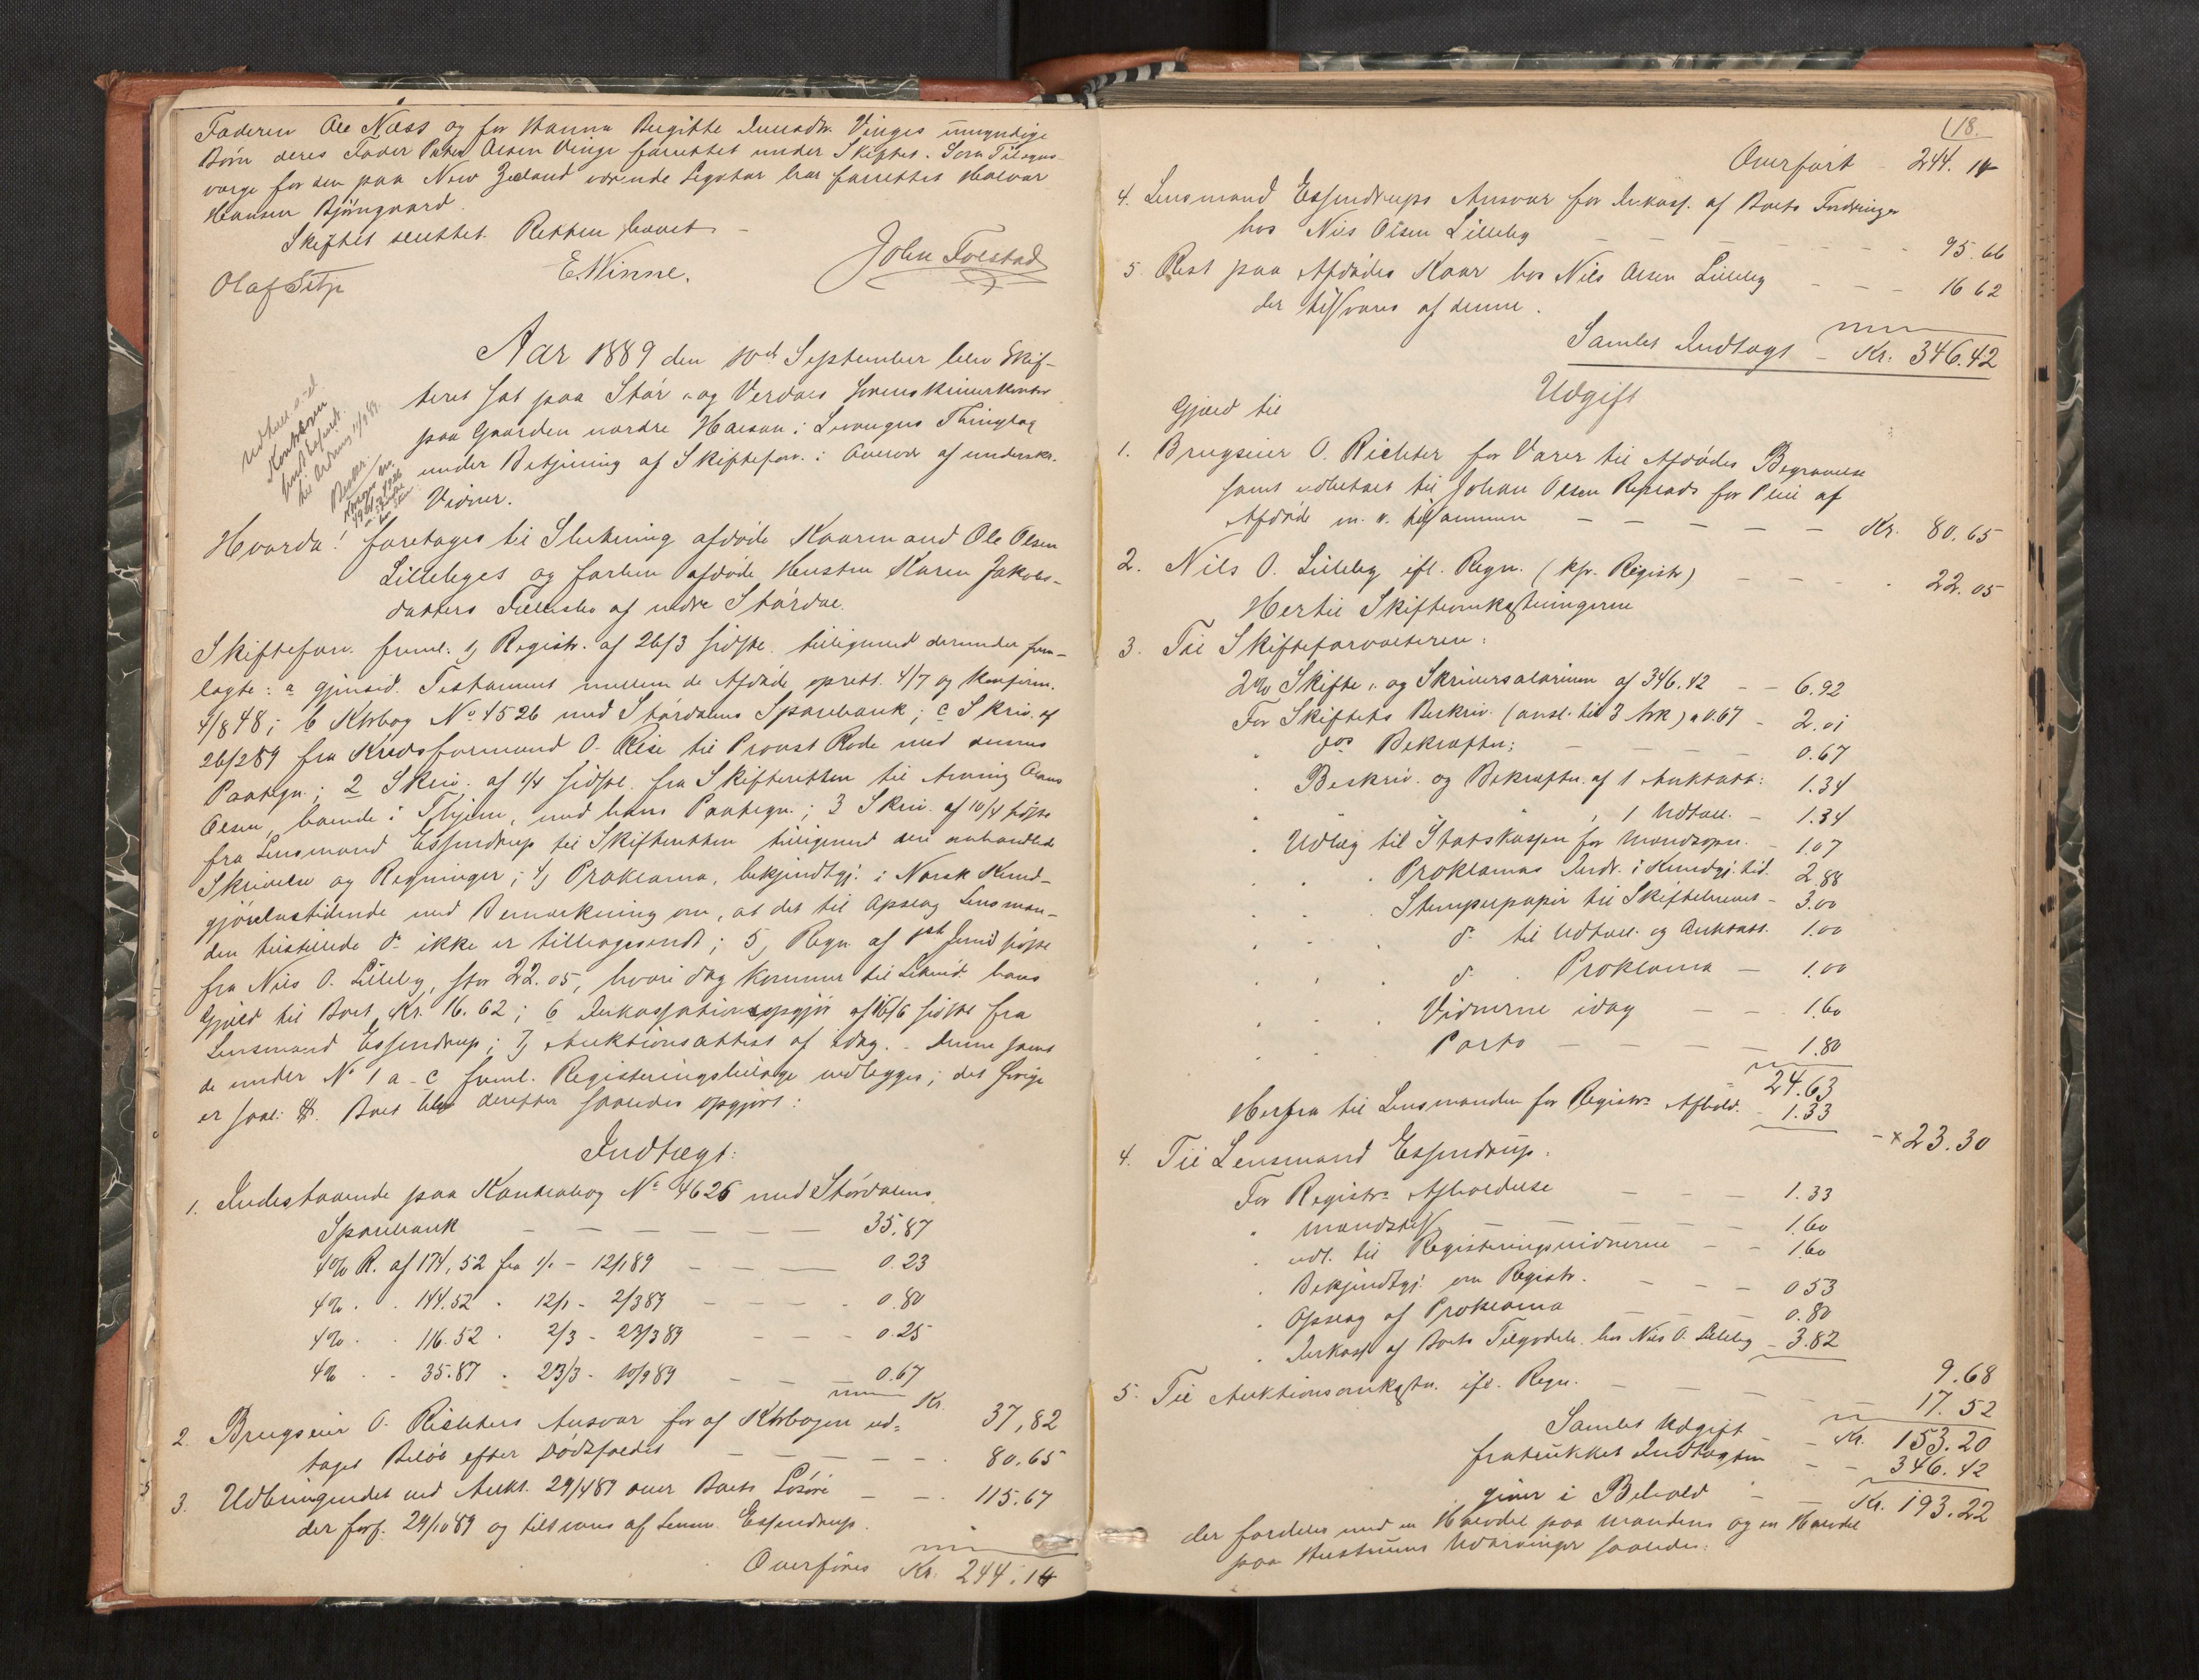 Faderen Ole Næss og for Hanna Birgitte Vinges umyndige
Børn deres Fader Peter Olsen Vinge forrettet under Skiftet. Som
værge for den paa New Zeland værende Legatar har forrettet Halvor
Hansen Bjøngaard.
Skiftet sluttet. Retten hævet
Olaf E. Winne. John Foestad
Aar 1889 den 10de September blev Skif-
teret sat paa Stør- og Verdals Sorenskriverkontor
paa Gaarden nordre Halsan i Levangers Thinglag
under Betjening af Skifteforv. i Overvær af underskr.
Vidner.
Hvorda! foretages til Slutning afdøde Kaarmand Ole Olsen
Lillebyes og forhen afdøde Hustru Karen Jakobs-
datters Fællesbo af nedre Størdal.
Skifteforv. freml. 1) Registr. af 26/3 sidstl. tilligemed derunder frem-
lagte: a gjensid. Testament mellem de Afdøde oprett. 4/7 og konfirm.
4/8 48; b Ktrbog No 4526 med Størdalens Sparebank; c Skriv. af
26/2 89 fra Kredsformand O. Rise til Provst Rode med dennes
Paategn.; 2 Skriv. af 1/4 sidstl. fra Skifteretten til Arving
Olsen, boende i Thjem, med hans Paategn.; 3 Skriv. af 10/4 sidstl.
fra Lensmand Essendrup til Skifteretten tilligemed
Skrivelse og Regninger; 4) Proklama, bekjendtgj. i Norsk Kund-
gjørelsestidende med Bemærkning om, at det til Opslag Lensman-
den tilstillede do ikke er tilbagesendt; 5) Regn. af 1st Juni sidstl.
fra Nils O. Lilleby, stor 22.05, hvori dog kommer til hans
Gjæld til Boet Kr. 16.62; 6 Inkassationsopgjør af 16/6 sidstl. fra
Lensmand Essendrup; 7) Auktionsattest af idag. Denne samt
de under No 1 a-c freml. Registeringsbilage vedlægges; det øvrige
er saal: Boet blev derefter saaledes opgjort:
Indtægt:
1. Indestaaende paa Kontrabog No 4626 med Størdalens
Sparebank — 35,87
4% R. af 174,52 fra 1/1 - 12/1 89 — 0.23
4% 144.52 12/1 - 2/3 89 — 0.80
4% 116.52 2/3 - 23/3 89 — 0.25
4% 35.87 23/3 - 10/9 89 — 0.67
Kr. 37,82
2. Brugseier O. Richters Ansvar for af Ktrbogen ud-
taget Beløb efter Dødsfaldet — 80.65
3. Udbringendet ved Aukt. 29/4 89 over Boets Løsøre — 115.67
der forf. 29/10 89 og tilsvares af Lensm. Essendrup.
Overføres Kr. 244.14
18.
Overført 244.14
4. Lensmand Essendrups Ansvar for Inkass. af Boets Fordringer
hos Nils Olsen Lilleby — 85.66
5. Rest paa Afdødes Kaar hos Nils Olsen Lilleby — 16 62
der tilsvares af denne.
Samlet Indtægt Kr. 346.42
Udgift
Gjæld til
1. Brugseier O. Richter for Varer til Afdødes Begravelse
samt udbetalt til Johan Olsen for Pleie af
Afdøde m.v. tilsammen — Kr. 80.65
2. Nils O. Lilleby ifl. Regn. (kfr. Registr) — 22.05
Hertil Skifteomkostningerne
3. Til Skifteforvalteren:
2% Skifte- og Skriversalarium af 346.42 — 6.92
For Skiftets Beskriv. (ansl. til 3 Ark) a 0.67 — 2.01
dos Bekræftn; — 0.67
Beskriv. og Bekræftn. af 1 Auktatt: 1.34
1 Udtall. — 1.34
Udlæg til Statskassen for — 1.07
Proklamas Indr. i Kundgj. tid. 2.88
Stempelpapir til Skiftebrevet — 3.00
do til Udtall. og Auktatt. 1.00
do Proklama — 1.00
Vidnerne idag — 1.60
Porto — 1.80
24.63
Herfra til Lensmanden for Registrs Afhold. — 1.33
23.30
4. Til Lensmand Essendrup:
For Registrs Afholdelse — 1.33
— 1.60
udl. til Registeringsvidnerne — 1.60
Bekjendtgj. om Registr. — 0 53
Opslag af Proklama — 0.80
Inkass. af Boets Tilgodeh. hos Nils O. Lilleby — 3.82
9.68
5. Til Auktionsomkostn. ifl. Regn. — 17.52
Samlet Udgift — Kr. 153.20
fratrukket Indtægten — 346.42
giver i Behold — Kr. 193.22
der fordeles med en Halvdel paa Mandens og en Halvdel
paa Hustruens Udarvinger saaledes: